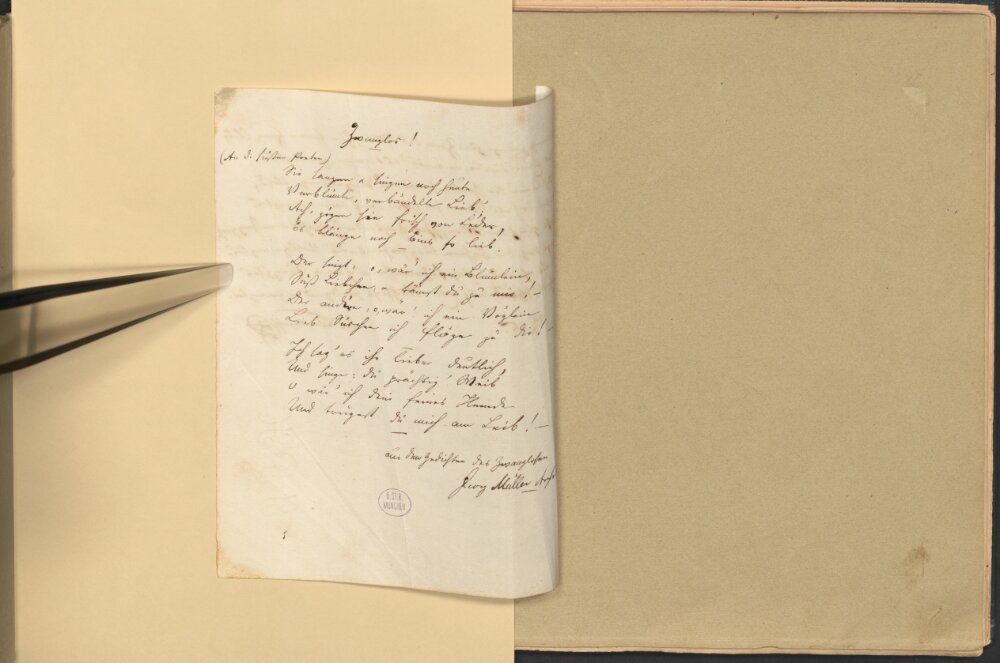 Zwanglos!
(An d. süßen Poeten)
Sie tanzen u singen noch heute
Verblümte, verbändelte Lieb'
Ach, zögen sie frisch vom Leder,
Es klänge noch Eins so lieb.
Der singt, o, wär ich ein Blümlein,
Süß Liebchen, u kämst du zu mir! –
Der andere, o, wär' ich ein Vöglein
Lieb Schätzchen ich flöge zu dir! –
Ich sag' es ihr lieber deutlich,
Und singe: du prächtig' Weib
O wär' ich dein feines Hemde
Und trügest du mich am Leib! –
aus den Gedichten des Zwanglosen
Georg Müller
B.ST.B.
MÜNCHEN